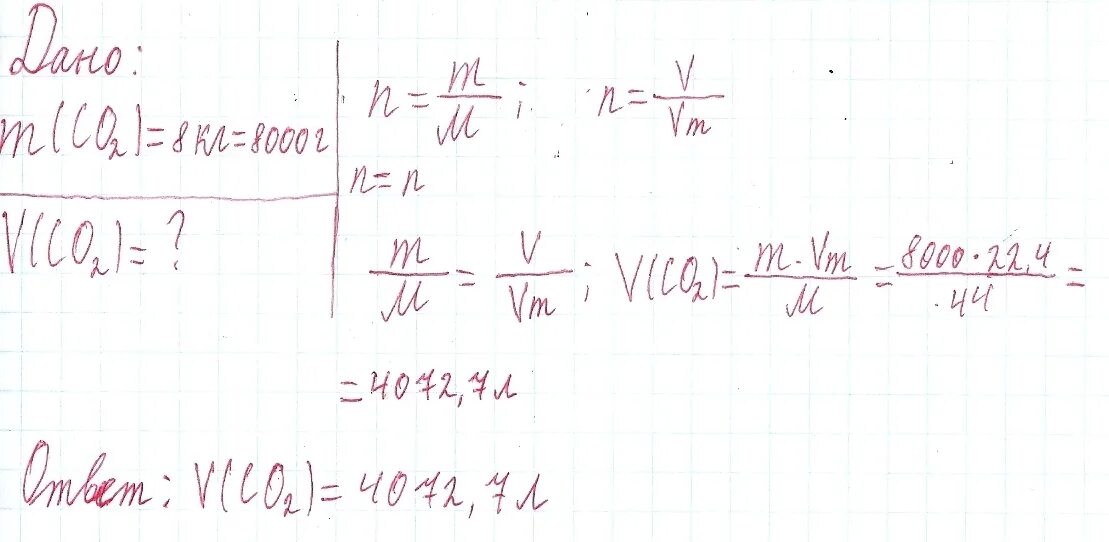 Дано:
m(CO₂)=8кг=8000г
V(CO₂)=?
n=m/M; n=V/Vm
n=n
m/M=V/Vm; V(CO₂)=m·Vm/M=8000·22,4/44=
=4072,7л
Ответ: V(CO₂)=4072,7л